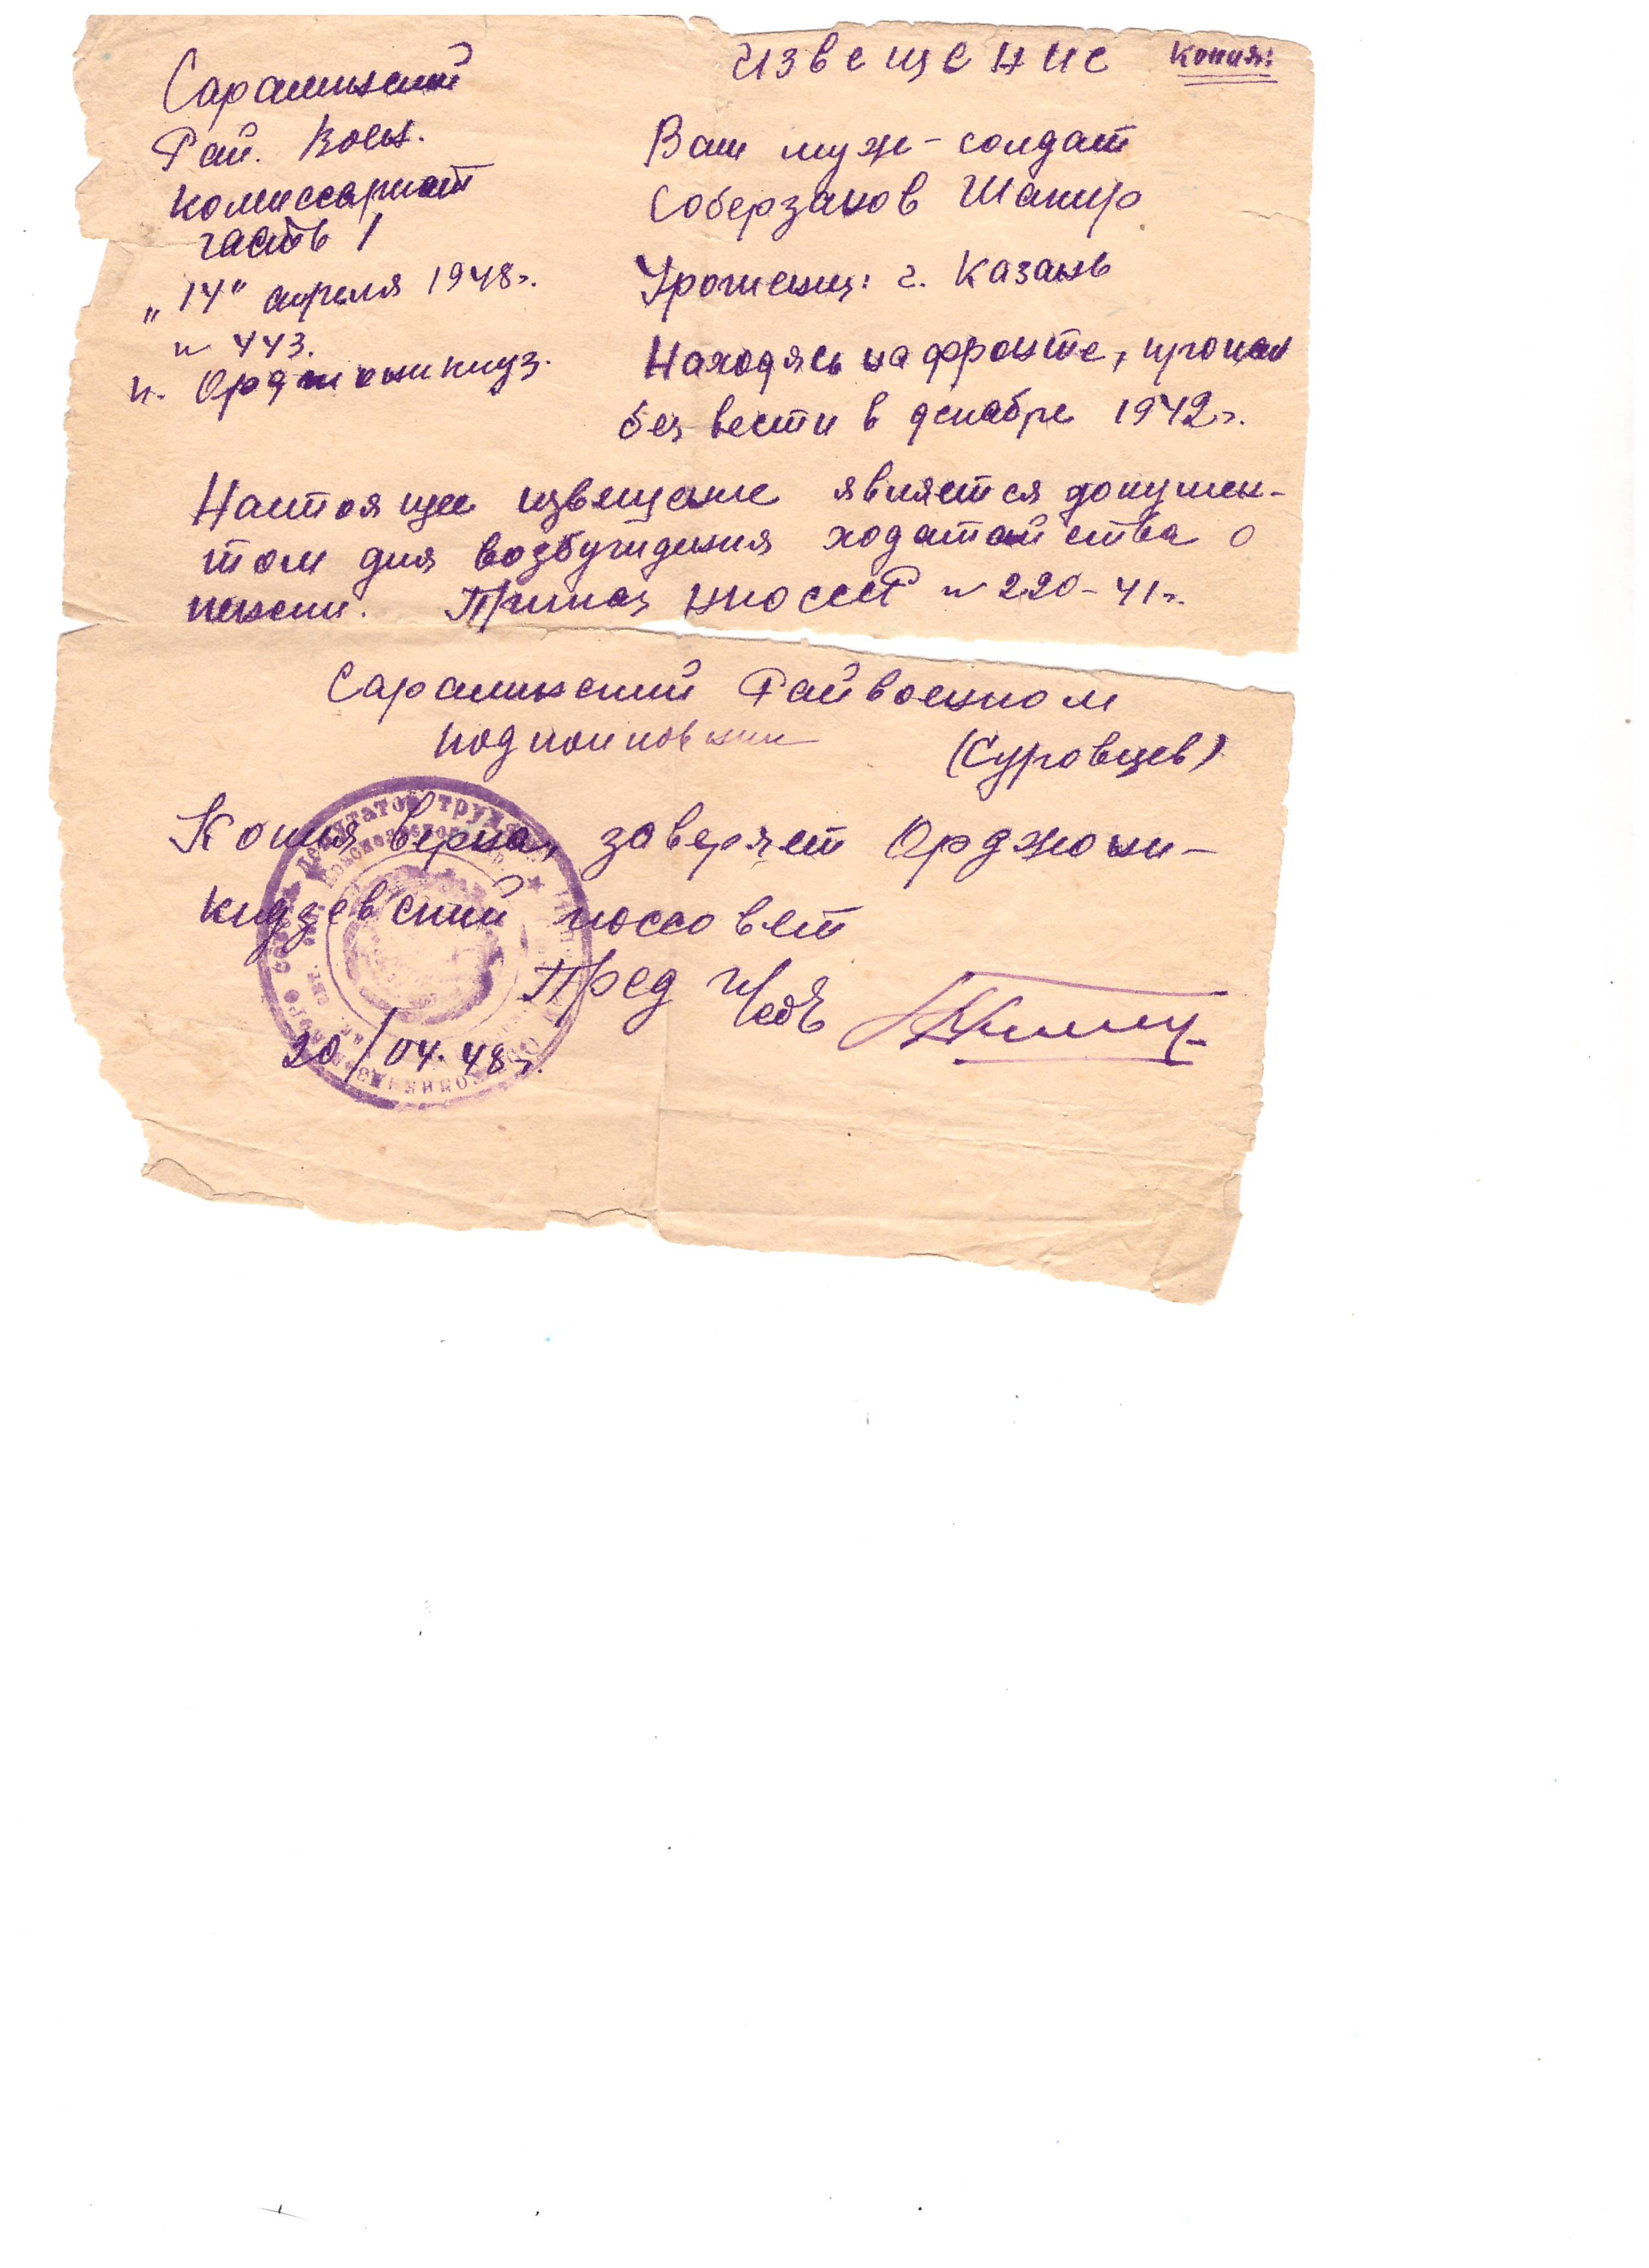 Извещение Копия:
Саралинский
Рай. Воен.
Комиссариат
часть 1
"14" апреля 1948г.
№ 443.
п. Орджоникидз.
Ваш муж - солдат
Соберзанов Шакир
Уроженец: г. Казань
Находясь на фронте, пропал
без вести в декабре 1942г.
Настоящее извещение является докумен-
том для возбуждения ходатайства о
пенсии. Приказ НКО СССР № 220-41г.
Саралинский Райвоенком
подполковник (Суровцев)
Копия верна, заверяет Орджони-
кидзевский поссовет
Пред
20/04.48г.
депутатов трудящ
Красноярского